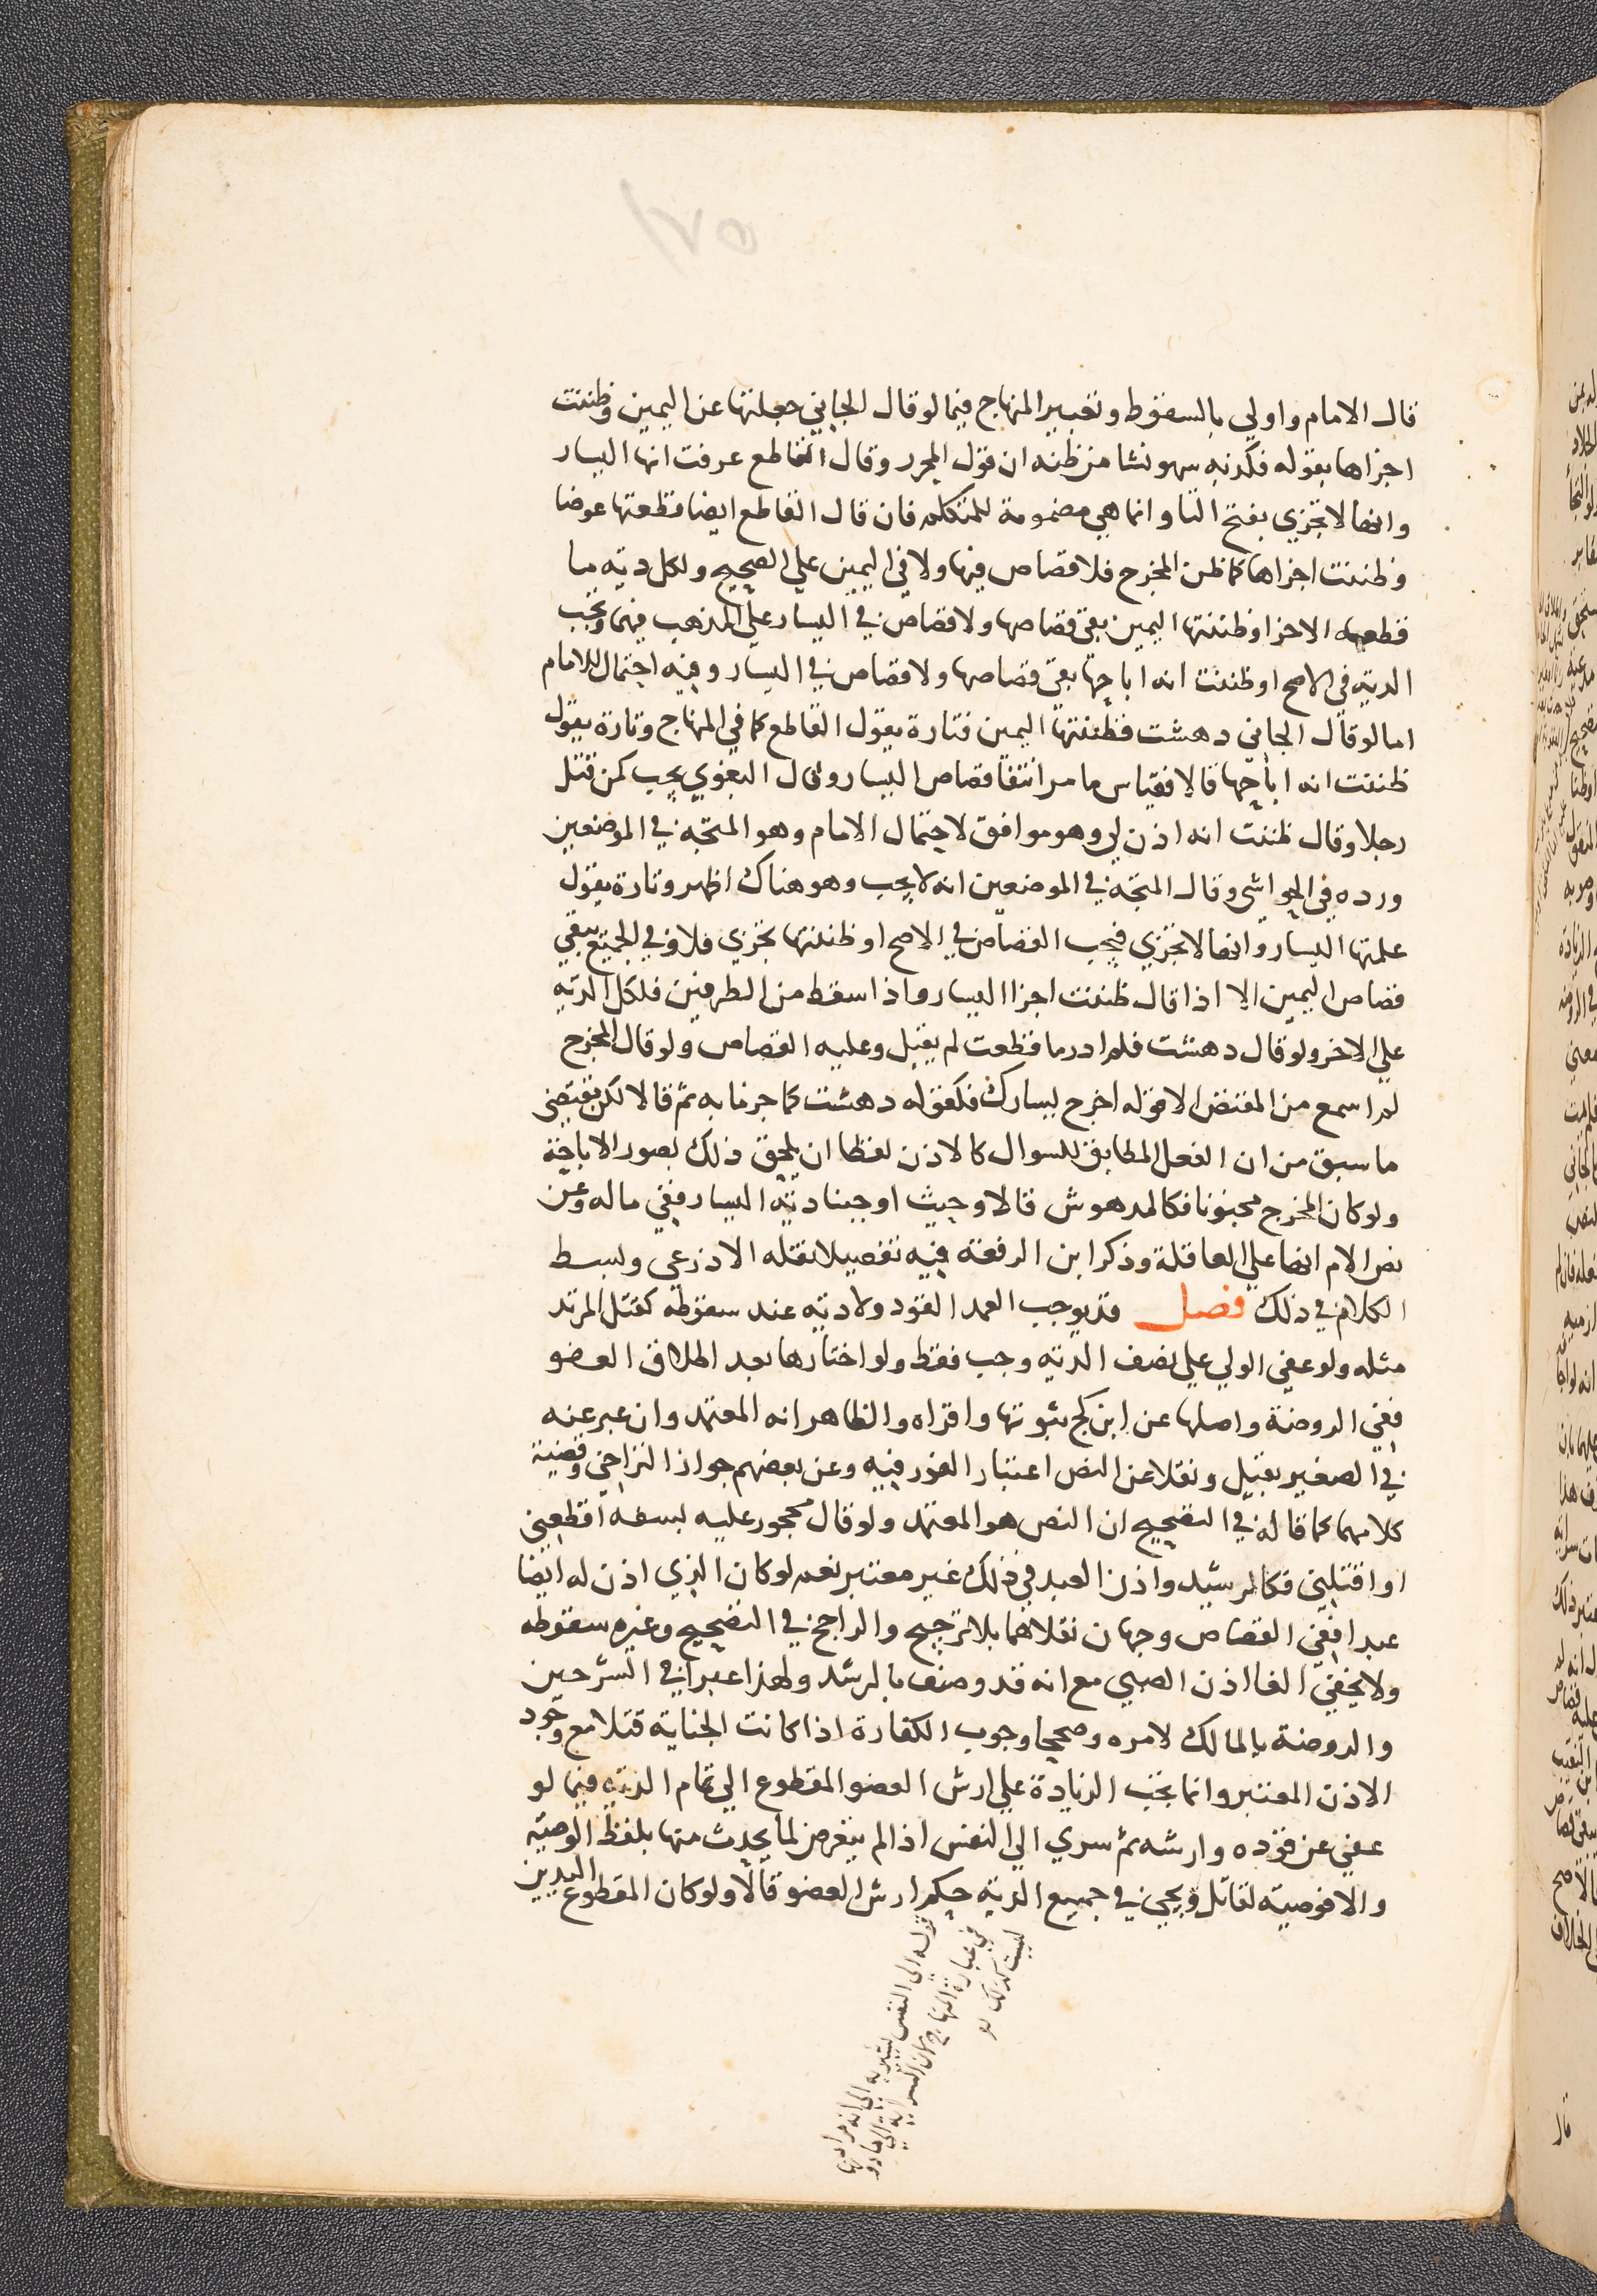 ١٢٥
قال الامام واولي بالسقوط وتعبير المنهاج فيما لو قال الجاني جعلتها عن اليمين وظننت
اجزاها بقوله فكذبه سهو نشا من ظنه ان قول المحرر وقال القاطع عرفت انها اليسار
وانها لا تجزي بفتح التا وانما هي مضمومة للمتكلم فان قال القاطع ايضا قطعتها عوضا
وظننت اجزاها كما ظن المخرج فلا قصاص فيها ولا في اليمين علي الصحيح ولكل دية ما
قطعه الاخر او ظننتها اليمين بقي قصاصها ولا قصاص في اليسار علي المذهب فيهما وتجب
الدية في الاصح او ظننت انه اباحها بقي قصاصها ولا قصاص في اليسار وفيه احتمال للامام
اما لو قال الجاني دهشت فظننتها اليمين فتارة يقول القاطع كما في المنهاج وتارة يقول
ظننت انه اباحها قالا فقياس ما مر انتفا قصاص اليسار وقال البغوي يجب كمن قتل
رجلا وقال ظننت انه اذن لي وهو موافق لاحتمال الامام وهو المتجه في الموضعين
ورده في الحواشي وقال المتجه في الموضعين انه لا يجب وهو هناك اظهر وتارة يقول
علمتها اليسار وانها لا تجزي فيجب القصاص في الاصح او ظننتها تجزي فلا وفي الجميع يبقي
قصاص اليمين الا اذا قال ظننت اجزا اليسار واذا سقط من الطرفين فلكل الدية
علي الاخر ولو قال دهشت فلم ادر ما قطعت لم يقبل وعليه القصاص ولو قال المخرج
لم اسمع من المقتص الا قوله اخرج يسارك فكقوله دهشت كما جزما به ثم قالا لكن يقتضي
ما سبق من ان الفعل المطابق للسوال كالاذن لفظا ان يلحق ذلك بصور الاباحة
ولو كان المخرج مجنونا فكالمدهوش قالا وحيث اوجبنا دية اليسار ففي ماله وعن
نص الام انها علي العاقلة وذكر ابن الرفعة فيه تفصيلا نقله الاذرعي وبسط
الكلام في ذلك فصل قد يوجب العمد القود ولا دية عند سقوطه كقتل المرتد
مثله ولو عفي الولي علي نصف الدية وجب فقط ولو اختارها بعد اطلاق العضو
ففي الروضة واصلها عن ابن كج ثبوتها واقراه والظاهر انه المعتمد وان عبر عنه
في الصغير بقيل ونقلا عن النص اعتبار الفور فيه وعن بعضهم جواز التراخي وقضية
كلامهما كما قاله في التصحيح ان النص هو المعتمد ولو قال محجور عليه بسفه اقطعني
او اقتلني فكالرشيد واذن العبد في ذلك غير معتبر نعم لو كان الذي اذن له ايضا
عبدا ففي القصاص وجهان نقلاهما بلا ترجيح والراجح في التصحيح وغيره سقوطه
ولا يخفي الغا اذن الصبي مع انه قد وصف بالرشد ولهذا عبرا في الشرحين
والروضة بالمالك لامره وصححا وجوب الكفارة اذا كانت الجناية قتلا مع وجود
الاذن المعتبر وانما تجب الزيادة علي ارش العضو المقطوع الي تمام الدية فيما لو
عفي عن قوده وارشه ثم سري الي النفس اذا لم يتعرض لما يحدث منها بلفظ الوصية
والا فوصية لقاتل ويجي في جميع الدية حكم ارش العضو قالا ولو كان المقطوع اليدين
قوله الي النفس يشير به الي انه مراد
في عبارة المنهاج وان السراية الي
ليست كذلك